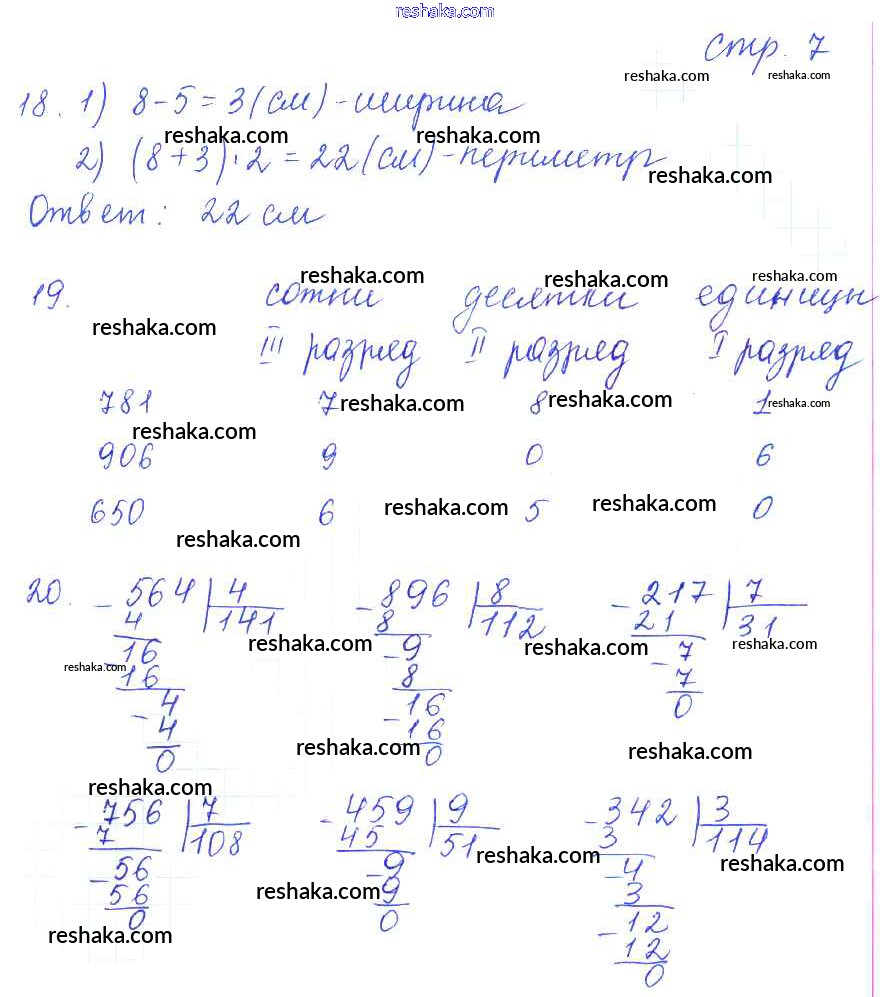 reshaka.com
стр. 7
reshaka.com reshaka.com
18. 1) 8-5=3(см)-ширина
reshaka.com reshaka.com
2) (8+3)·2=22(см)-периметр
reshaka.com
Ответ: 22 см
reshaka.com reshaka.com reshaka.com
19. сотни десятки единицы
reshaka.com
III разряд II разряд I разряд
781 7 8 1
reshaka.com reshaka.com reshaka.com
reshaka.com
906 9 0 6
650 6 5 0
reshaka.com reshaka.com
reshaka.com
20. -564 | 4 -896 | 8 -217 | 7
4 141 8 112 21 31
reshaka.com reshaka.com reshaka.com
-16 -9 -7
reshaka.com
16 8 7
-4 -16 0
4 -16
0 0
reshaka.com reshaka.com
reshaka.com
-756 | 7 -459 | 9 -342 | 3
7 108 45 51 3 114
reshaka.com reshaka.com
-56 -9 -4
56 9 3
reshaka.com
0 0 -12
reshaka.com
12
0